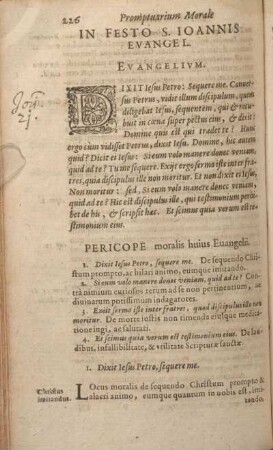 226 Promptuarium Morale
IN FESTO S. IOANNIS
EVANGEL.
EVANGELIVM.
DIXIT Iesus Petro: Sequere me. Conuer-
sus Petrus, vidit illum discipulum, quem
diligebat Iesus, sequentem, qui & recu-
buit in cœna super pectus eius, & dixit:
Domine quis est qui tradet te? Hunc
ergo cum vidisset Petrus, dixit Iesu. Domine, hic autem
quid? Dicit ei Iesus: Si eum volo manere donec veniam,
quid ad te? Tu me sequere. Exijt ergo sermo iste inter fra-
tres, quia discipulus ille non moritur. Et non dixit ei Iesus,
Non moritur: sed, Si eum volo manere donec veniam,
quid ad te? Hic est discipulus ille, qui testimonium perhi-
bet de his, & scripsit hæc. Et scimus quia verum est te-
stimonium eius.
PERICOPE moralis huius Euangelii.
1. Dixit Iesus Petro, sequere me. De sequendo Chri-
stum prompto, ac hilari animo, eumque imitando.
2. Si eum volo manere donec veniam, quid ad te? Con-
tra nimium curiosos rerum ad se non pertinentium, ac
diuinarum potissimum indagatores.
3. Exiit sermo iste inter fratres, quod discipulus ille non
moritur. De morte iustis non timenda eiusque medita-
tione iugi, ac salutari.
4. Et scimus quia verum est testimonium eius. De lau-
dibus, infallibilitate, & vtilitate Scripturæ sanctæ.
1. Dixit Iesus Petro, sequere me.
Christus
imitandus.
Locus moralis de sequendo Christum prompto &
alacri animo, eumque quantum in nobis est, imi-
tando.